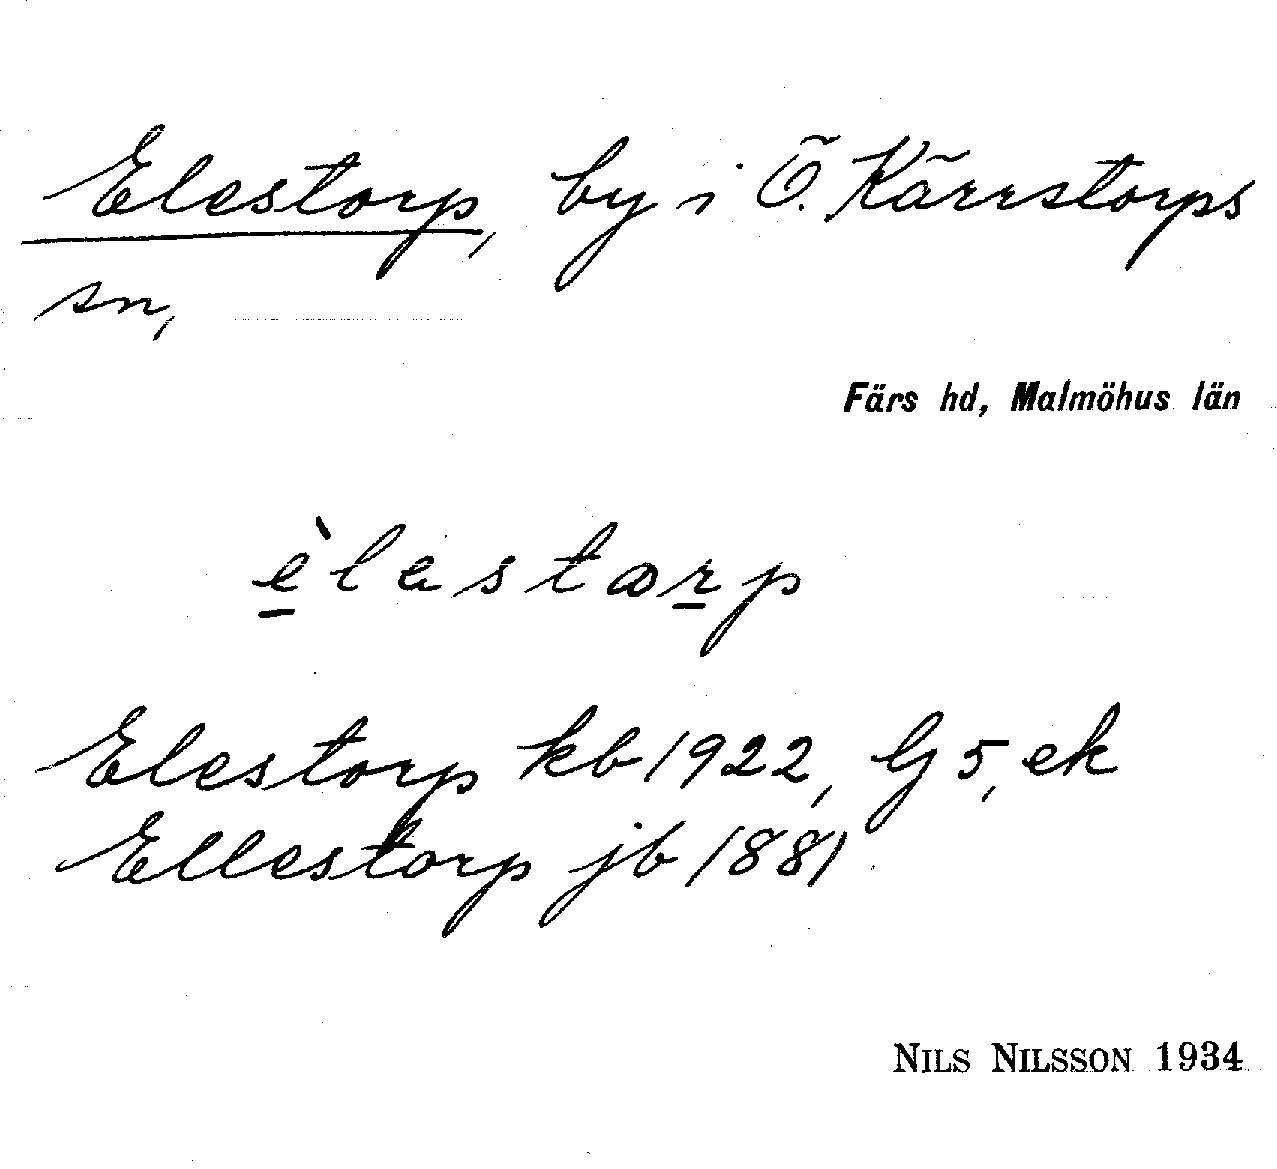 Elestorp, by i Ö. Kärrstorps
sn,
Färs hd, Malmöhus län
èlestorp
Elestorp kb 1922, G5, ek
Ellestorp jb 1881
NILS NILSSON 1934